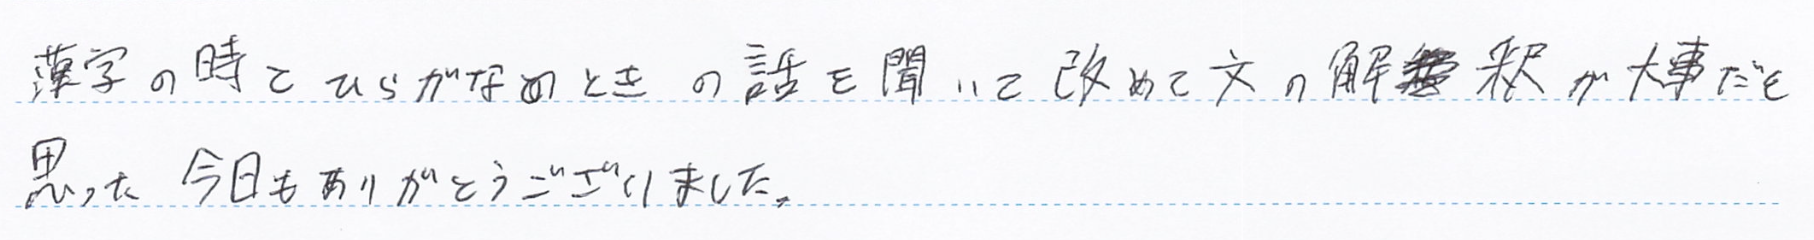 漢字の時とひらがなのときの話を聞いて改めて文の解釈が大事だと
思った 今日もありがとうございました。